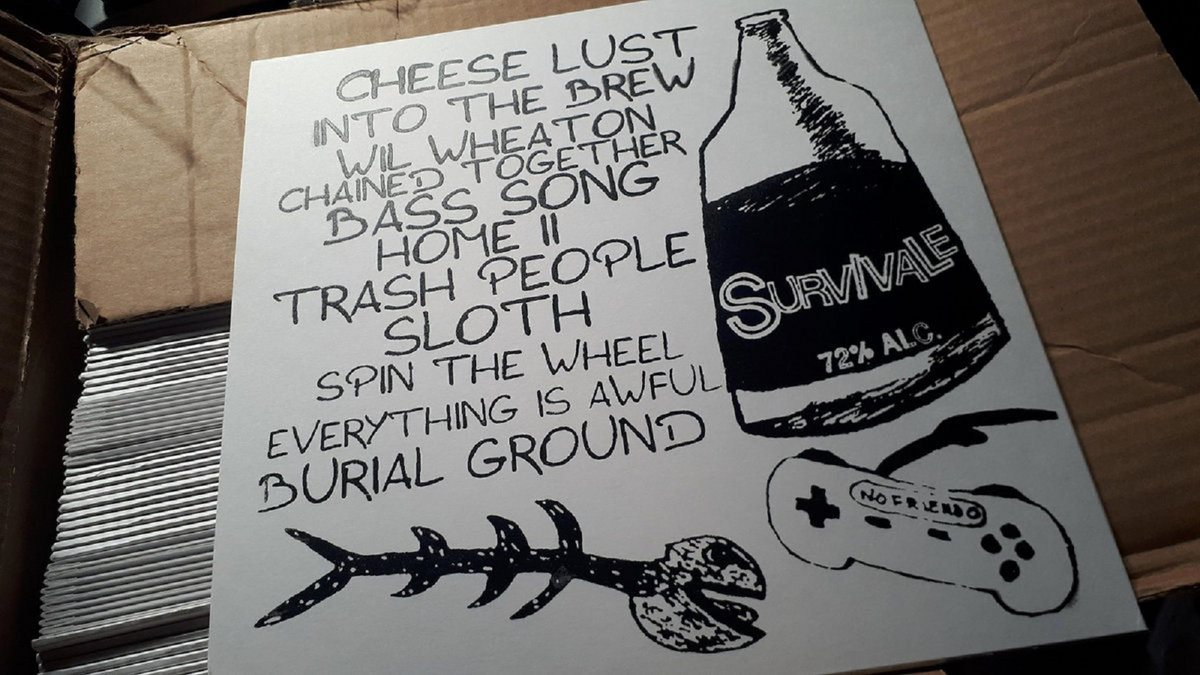 CHEESE LUST
INTO THE BREW
WIL WHEATON
CHAINED TOGETHER
BASS SONG
HOME II
TRASH PEOPLE
SLOTH
SPIN THE WHEEL
EVERYTHING IS AWFUL
BURIAL GROUND
SURVIVALE
72% ALC.
NOFRIENDO